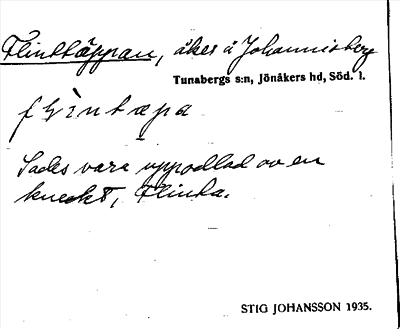 Flinktäppan, åker å Johannisberg
Tunabergs s:n, Jönåkers hd, Söd. l.
Sades vara uppodlad av en
knekt, Flinta.
STIG JOHANSSON 1935.